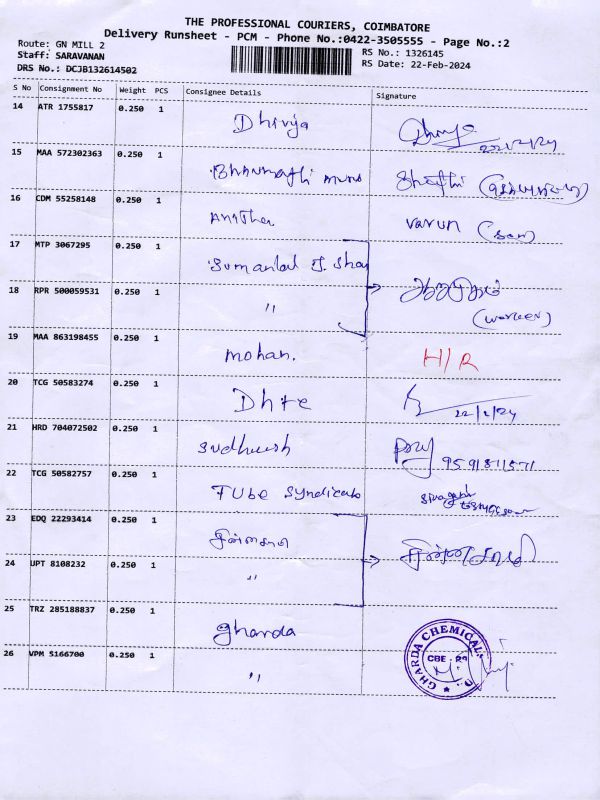 THE PROFESSIONAL COURIERS, COIMBATORE
Delivery Runsheet - PCM - Phone No.:0422-3505555 - Page No.:2
Route: GN MILL 2
RS No.: 1326145
Staff: SARAVANAN
RS Date: 22-Feb-2024
DRS No.: DCJB132614502
S No Consignment No Weight PCS Consignee Details Signature
14 ATR 1755817 0.250 1 Dhivya
22/2/24
15 MAA 572302363 0.250 1
16 CDM 55258148 0.250 1 Anitha varun (son)
17 MTP 3067295 0.250 1 Sumanlal J. Shay
18 RPR 500059531 0.250 1 "
(worker)
19 MAA 863198455 0.250 1 mohan. H/R
20 TCG 50583274 0.250 1
22/2/24
21 HRD 704072502 0.250 1
22 TCG 50582757 0.250 1 Tube Syndicate
23 EDQ 22293414 0.250 1
24 UPT 8108232 0.250 1 "
25 TRZ 285188837 0.250 1 gharda
26 VPM 5166700 0.250 1 "
GHARDA CHEMICALS
CBE